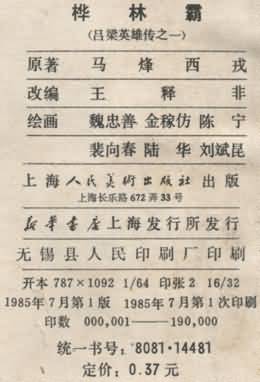 桦林霸
(吕梁英雄传之一)
原著 马烽 西戎
改编 王释非
绘画 魏忠善 金稼仿 陈宁
裴向春 陆华 刘斌昆
上海人民美術出版社出版
上海长乐路672弄33号
新华書店上海发行所发行
无锡县人民印刷厂印刷
开本 787×1092 1/64 印张2 16/32
1985年7月第1版 1985年7月第1次印刷
印数 000,001——190,000
统一书号:8081·14481
定价:0.37元